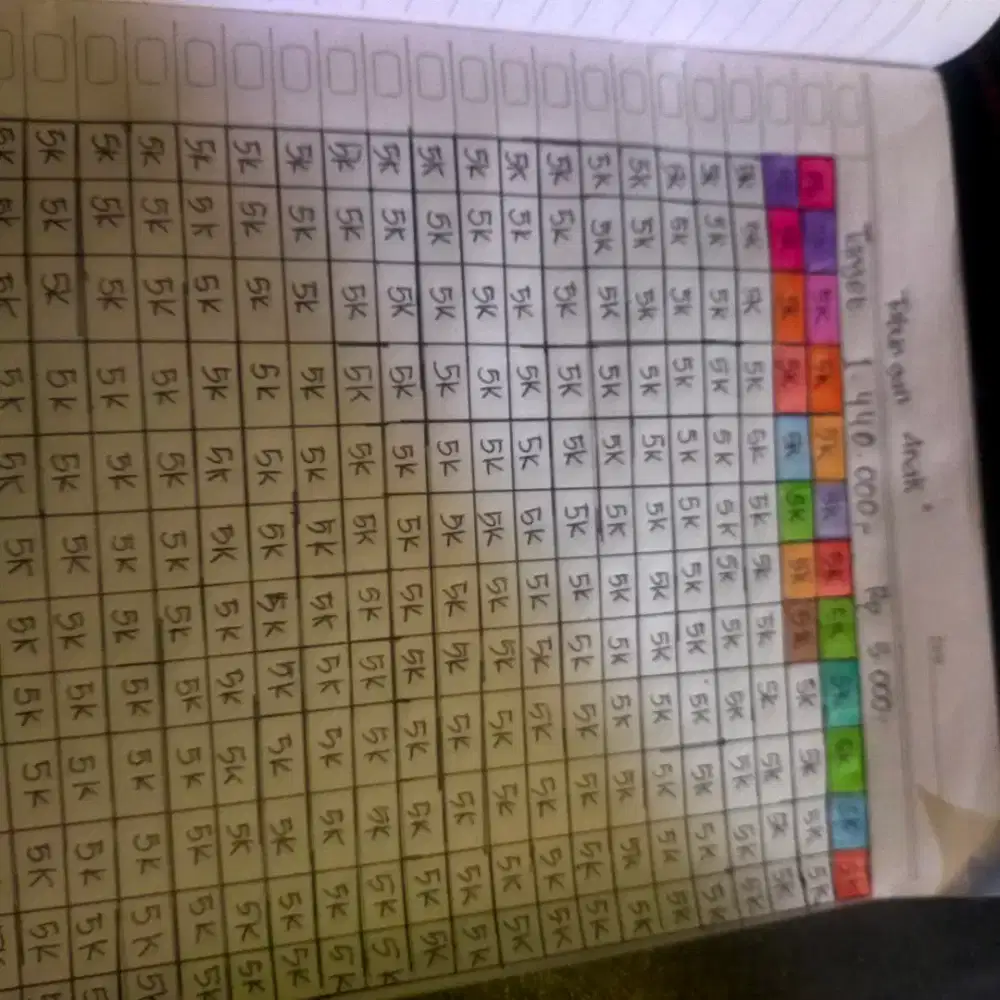 Tabungan Anak
Target 1.440.000,- Rp 5.000
5K 5K 5K 5K 5K 5K 5K 5K 5K 5K
5K 5K 5K 5K 5K 5K 5K 5K 5K 5K
5K 5K 5K 5K 5K 5K 5K 5K 5K 5K 5K 5K
5K 5K 5K 5K 5K 5K 5K 5K 5K 5K 5K 5K
5K 5K 5K 5K 5K 5K 5K 5K 5K 5K 5K 5K
5K 5K 5K 5K 5K 5K 5K 5K 5K 5K 5K 5K
5K 5K 5K 5K 5K 5K 5K 5K 5K 5K 5K 5K
5K 5K 5K 5K 5K 5K 5K 5K 5K 5K 5K 5K
5K 5K 5K 5K 5K 5K 5K 5K 5K 5K 5K 5K
5K 5K 5K 5K 5K 5K 5K 5K 5K 5K 5K 5K
5K 5K 5K 5K 5K 5K 5K 5K 5K 5K 5K 5K
5K 5K 5K 5K 5K 5K 5K 5K 5K 5K 5K 5K
5K 5K 5K 5K 5K 5K 5K 5K 5K 5K 5K 5K
5K 5K 5K 5K 5K 5K 5K 5K 5K 5K 5K 5K
5K 5K 5K 5K 5K 5K 5K 5K 5K 5K 5K 5K
5K 5K 5K 5K 5K 5K 5K 5K 5K 5K 5K 5K
5K 5K 5K 5K 5K 5K 5K 5K 5K 5K 5K 5K
5K 5K 5K 5K 5K 5K 5K 5K 5K 5K 5K 5K
5K 5K 5K 5K 5K 5K 5K 5K 5K 5K 5K
5K 5K 5K 5K 5K 5K 5K 5K 5K 5K 5K